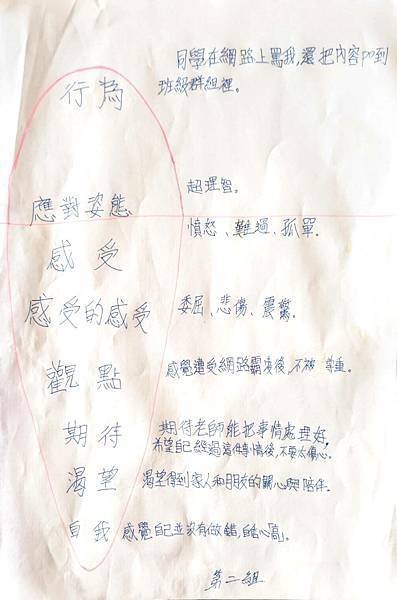 行為 同學在網路上罵我,還把內容po到
班級群組裡。
應對姿態 超理智。
感受 憤怒、難過、孤單。
感受的感受 委屈、悲傷、震驚。
觀點 感覺遭受網路霸凌後,不被 尊重。
期待 期待老師能把事情處理好。
希望自己經過這件事情後,不要太傷心。
渴望 渴望得到家人和朋友的關心與陪伴。
自我 感覺自己並沒有做錯,
第二組